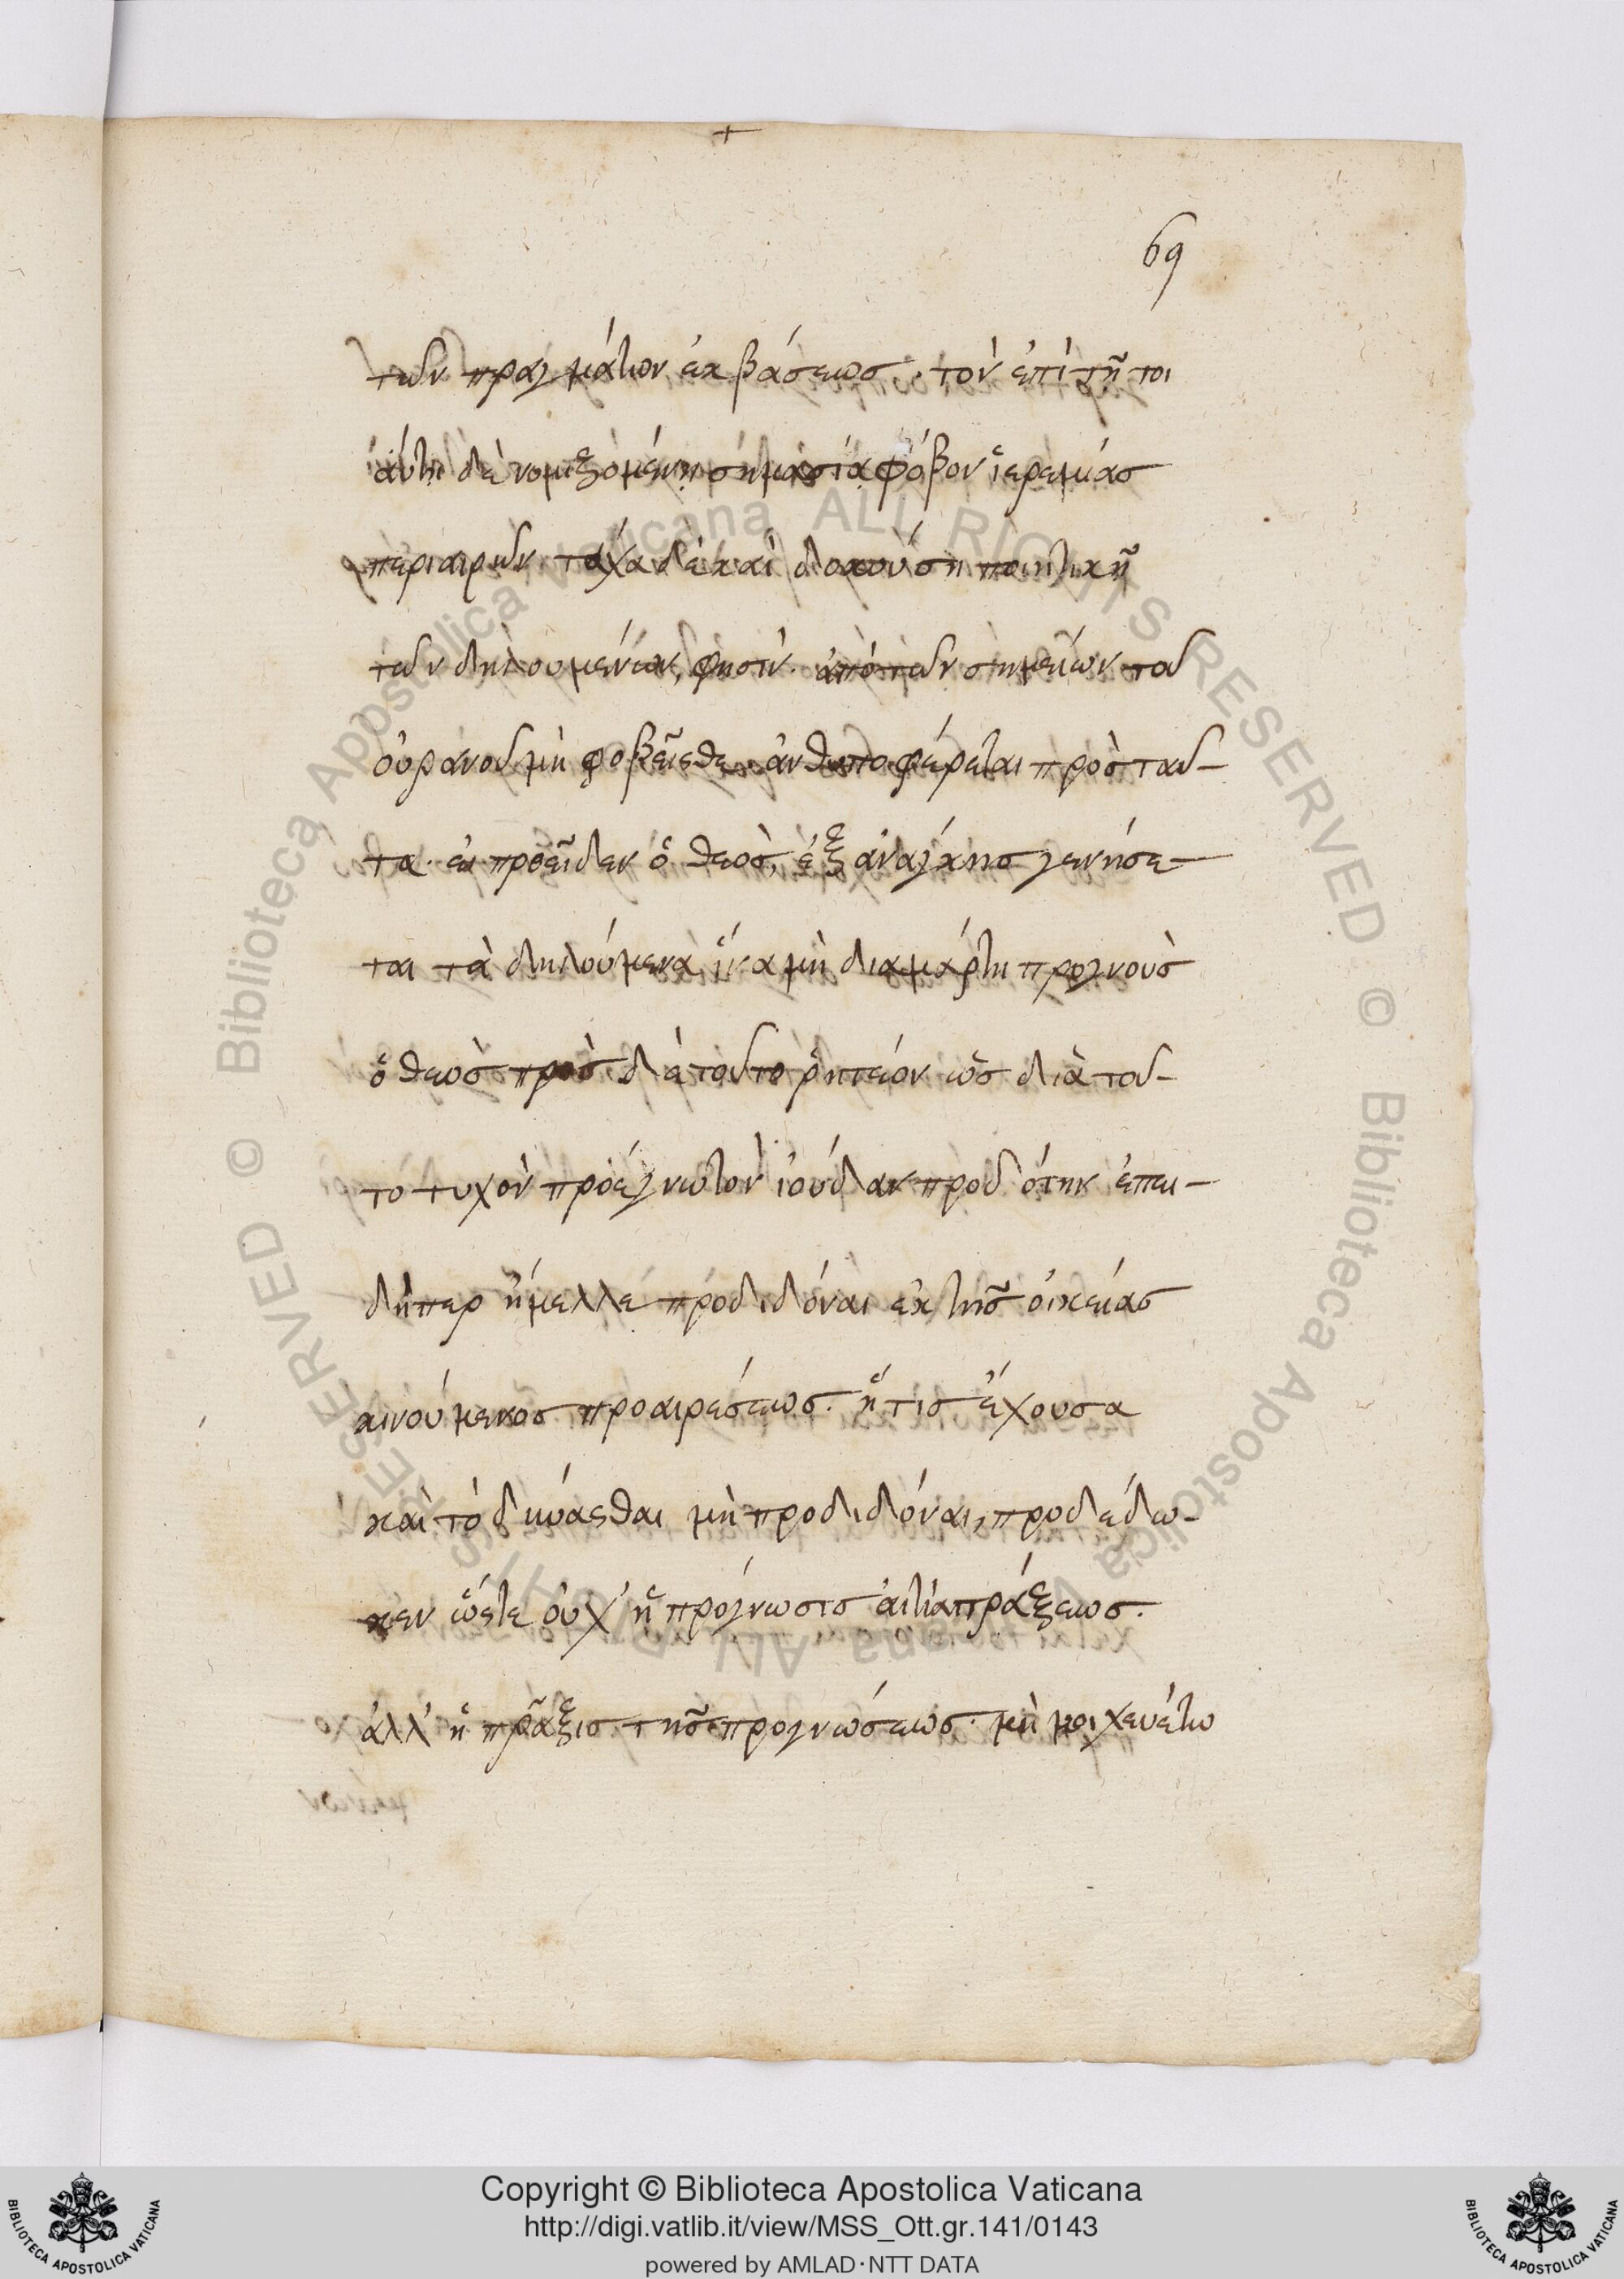 69
τῶν πραγμάτων ἐκβάσεως. τὸν ἐπὶ τῇ τοι
αύτῃ δὲ νομιζομένῃ σημασίᾳ φόβον ἱερεμίας
περιαιρῶν τάχα δὲ καὶ δοκούσῃ ποιητικῇ
τῶν δηλουμένων, φησίν. ἀπὸ τῶν σημείων τοῦ
οὐρανοῦ μὴ φοβεῖσθε. ἀνθυποφέρεται πρὸς ταῦ-
τα. εἰ προεῖδεν ὁ θεὸς, ἐξ ἀνάγκης γενήσε-
ται τὰ δηλούμενα, ἵνα μὴ διαμάρτῃ προγνοὺς
ὁ θεὸς πρὸς δὲ τοῦτο ῥητέον ὡς διὰ τοῦ-
το τυχὸν προέγνω τὸν ἰούδαν προδότην ἐπει-
δήπερ ἤμελλε προδιδόναι ἐκ τῆς οἰκείας
αἰνούμενος προαιρέσεως. ἥτις ἔχουσα
καὶ τὸ δύνασθαι μὴ προδιδόναι, προδέδω-
κεν ὥστε οὐχ' ἡ πρόγνωσις αἰτία πράξεως.
ἀλλ' ἡ πρᾶξις τῆς προγνώσεως. μὴ μοιχευέτω
Copyright © Biblioteca Apostolica Vaticana
http://digi.vatlib.it/view/MSS_Ott.gr.141/0143
powered by AMLAD·NTT DATA
Biblioteca Apostolica Vaticana ALL RIGHTS RESERVED ©
Biblioteca Apostolica Vaticana ALL RIGHTS RESERVED ©
BIBLIOTECA APOSTOLICA VATICANA
BIBLIOTECA APOSTOLICA VATICANA